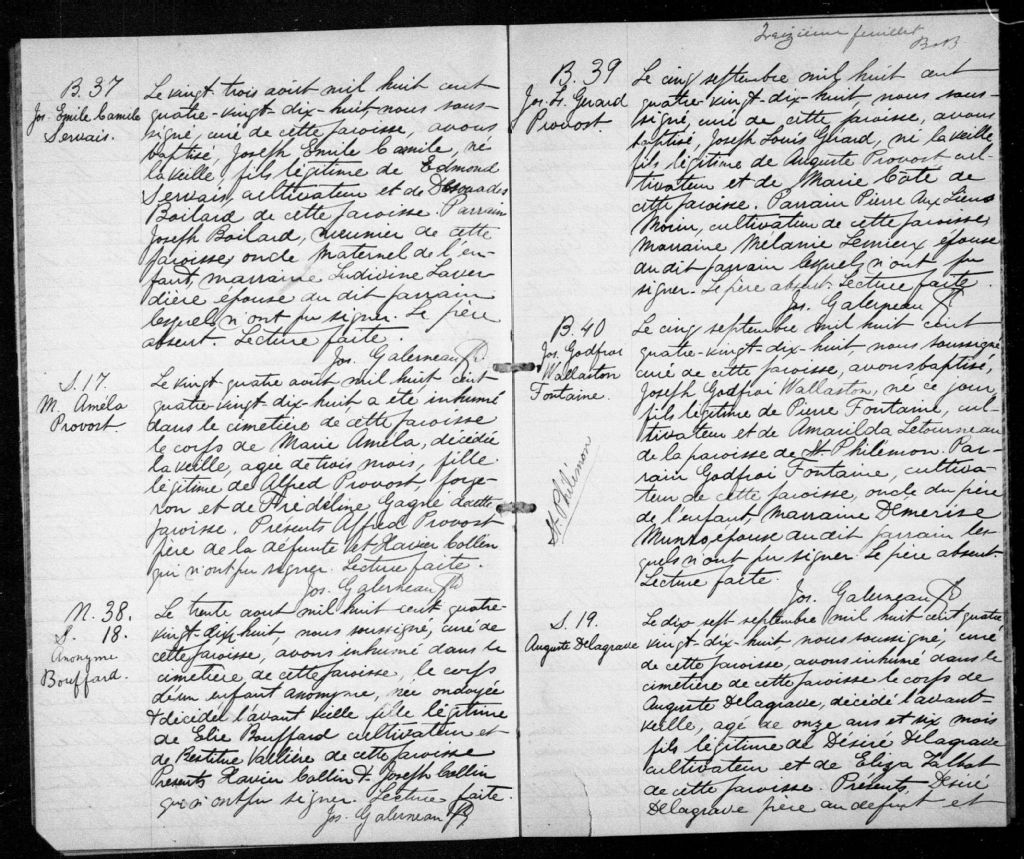 B. 37
Jos. Emile Camile
Servais.
Le vingt trois août mil huit cent
quatre-vingt-dix-huit, nous sous-
signé, curé de cette paroisse, avons
baptisé, Joseph Emile Camile, né
la veille, fils légitime de Edmond
Servais, cultivateur et de
Boilard de cette paroisse. Parrain
Joseph Boilard, meunier de cette
paroisse, oncle maternel de l'en-
fant, marraine Ludivine Laver-
dière épouse du dit parrain
lesquels n'ont pu signer. Le père
absent. Lecture faite.
Jos. Galerneau Ptr
S. 17.
M. Améla
Provost.
Le vingt-quatre août mil huit cent
quatre-vingt-dix-huit a été inhumé
dans le cimetière de cette paroisse
le corps de Marie Améla, décédée
la veille, agée de trois mois, fille
légitime de Alfred Provost forge-
ron et de Frédéline Gagné de cette
paroisse. Présents Alfred Provost
père de la défunte et Xavier Collin
qui n'ont pu signer. Lecture faite.
Jos. Galerneau Ptr
N. 38.
S. 18.
Anonyme
Bouffard.
Le trente aout mil huit cent quatre-
vingt-dix huit nous soussigné, curé de
cette paroisse, avons inhumé dans le
cimetière, de cette paroisse, le corps
d'un enfant anonyme, née ondoyée
& décidée l'avant veille fille légitime
de Elie Bouffard cultivateur et
de Restitue Vallière de cette paroisse
Présents Xavier Collin & Joseph Collin
qui n'ont pu signer. Lecture faite.
Jos. Galerneau Ptr
Treizième feuillet
B. 39
Jos. Ls. Gerard
Provost.
Le cinq septembre mil huit cent
quatre-vingt-dix-huit, nous sous-
signé, curé de cette paroisse, avons
baptisé, Joseph Louis Gérard, né la veille
fils légitime de Auguste Provost cul-
tivateur et de Marie Côté de
cette paroisse. Parrain Pierre Aux Liens
Morin, cultivateur de cette paroisse,
marraine Mélanie Lemieux épouse
du dit parrain lesquels n'ont pu
signer. Le père absent. Lecture faite.
Jos. Galerneau Ptr
B. 40
Jos. Godfroi
Wallaston
Fontaine.
St. Philémon
Le cinq septembre mil huit cent
quatre-vingt-dix-huit, nous soussigné
curé de cette paroisse, avons baptisé,
Joseph Godfroi Wallaston, né ce jour,
fils légitime de Pierre Fontaine, cul-
tivateur et de Amarilda Letourneau
de la paroisse de St. Philémon. Par-
rain Godfroi Fontaine, cultiva-
teur de cette paroisse, oncle du père
de l'enfant, marraine Demerise
Munro épouse du dit parrain les-
quels n'ont pu signer. Le père absent.
Lecture faite.
Jos. Galerneau Ptr
S. 19.
Auguste Delagrave
Le dix sept septembre mil huit cent quatre
vingt-dix-huit, nous soussigné, curé
de cette paroisse, avons inhumé dans le
cimetière de cette paroisse le corps de
Auguste Delagrave, décidé l'avant-
veille, agé de onze ans et six mois
fils légitime de Désiré Delagrave
cultivateur et de Eliza Talbot
de cette paroisse. Présents, Désiré
Delagrave père du défunt et